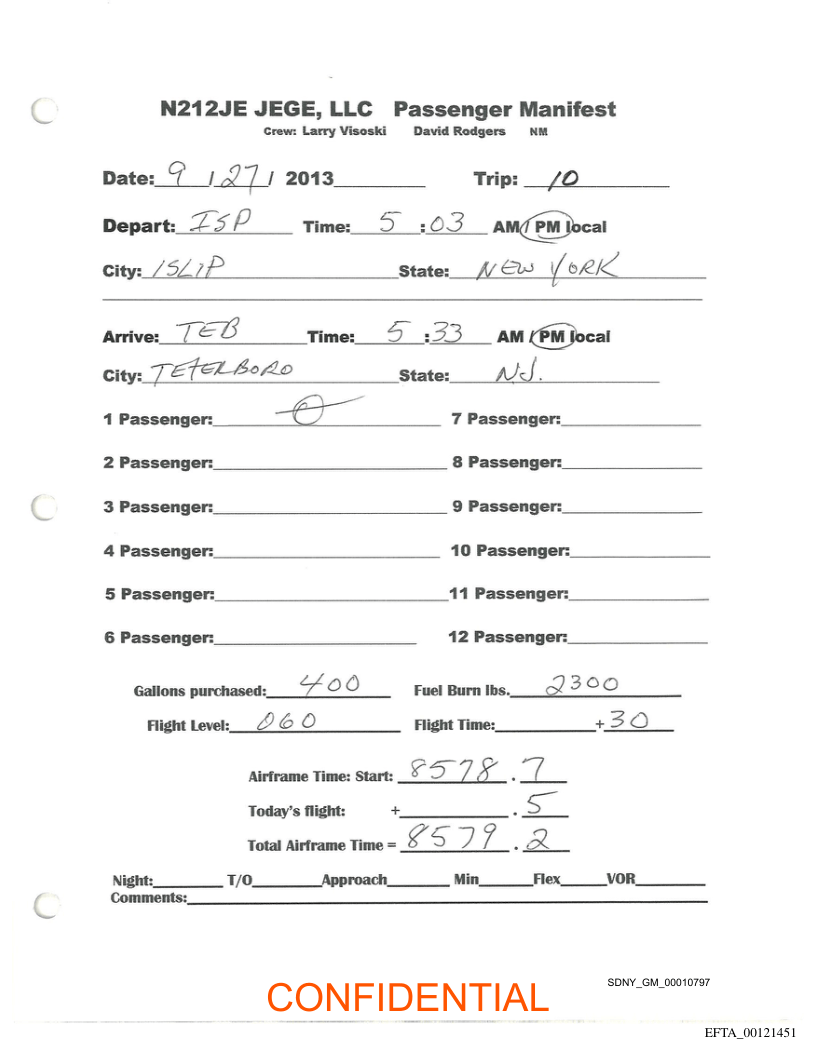 N212JE JEGE, LLC Passenger Manifest
Crew: Larry Visoski David Rodgers NM
Date: 9 / 27 / 2013 Trip: 10
Depart: ISP Time: 5 : 03 AM / PM local
City: ISLIP State: NEW YORK
Arrive: TEB Time: 5 : 33 AM / PM local
City: TETERBORO State: NJ.
1 Passenger: 0 7 Passenger:
2 Passenger: 8 Passenger:
3 Passenger: 9 Passenger:
4 Passenger: 10 Passenger:
5 Passenger: 11 Passenger:
6 Passenger: 12 Passenger:
Gallons purchased: 400 Fuel Burn lbs. 2300
Flight Level: 060 Flight Time: + 30
Airframe Time: Start: 8578 . 7
Today's flight: + . 5
Total Airframe Time = 8579 . 2
Night: T/O Approach Min Flex VOR
Comments:
SDNY_GM_00010797
CONFIDENTIAL
EFTA_00121451